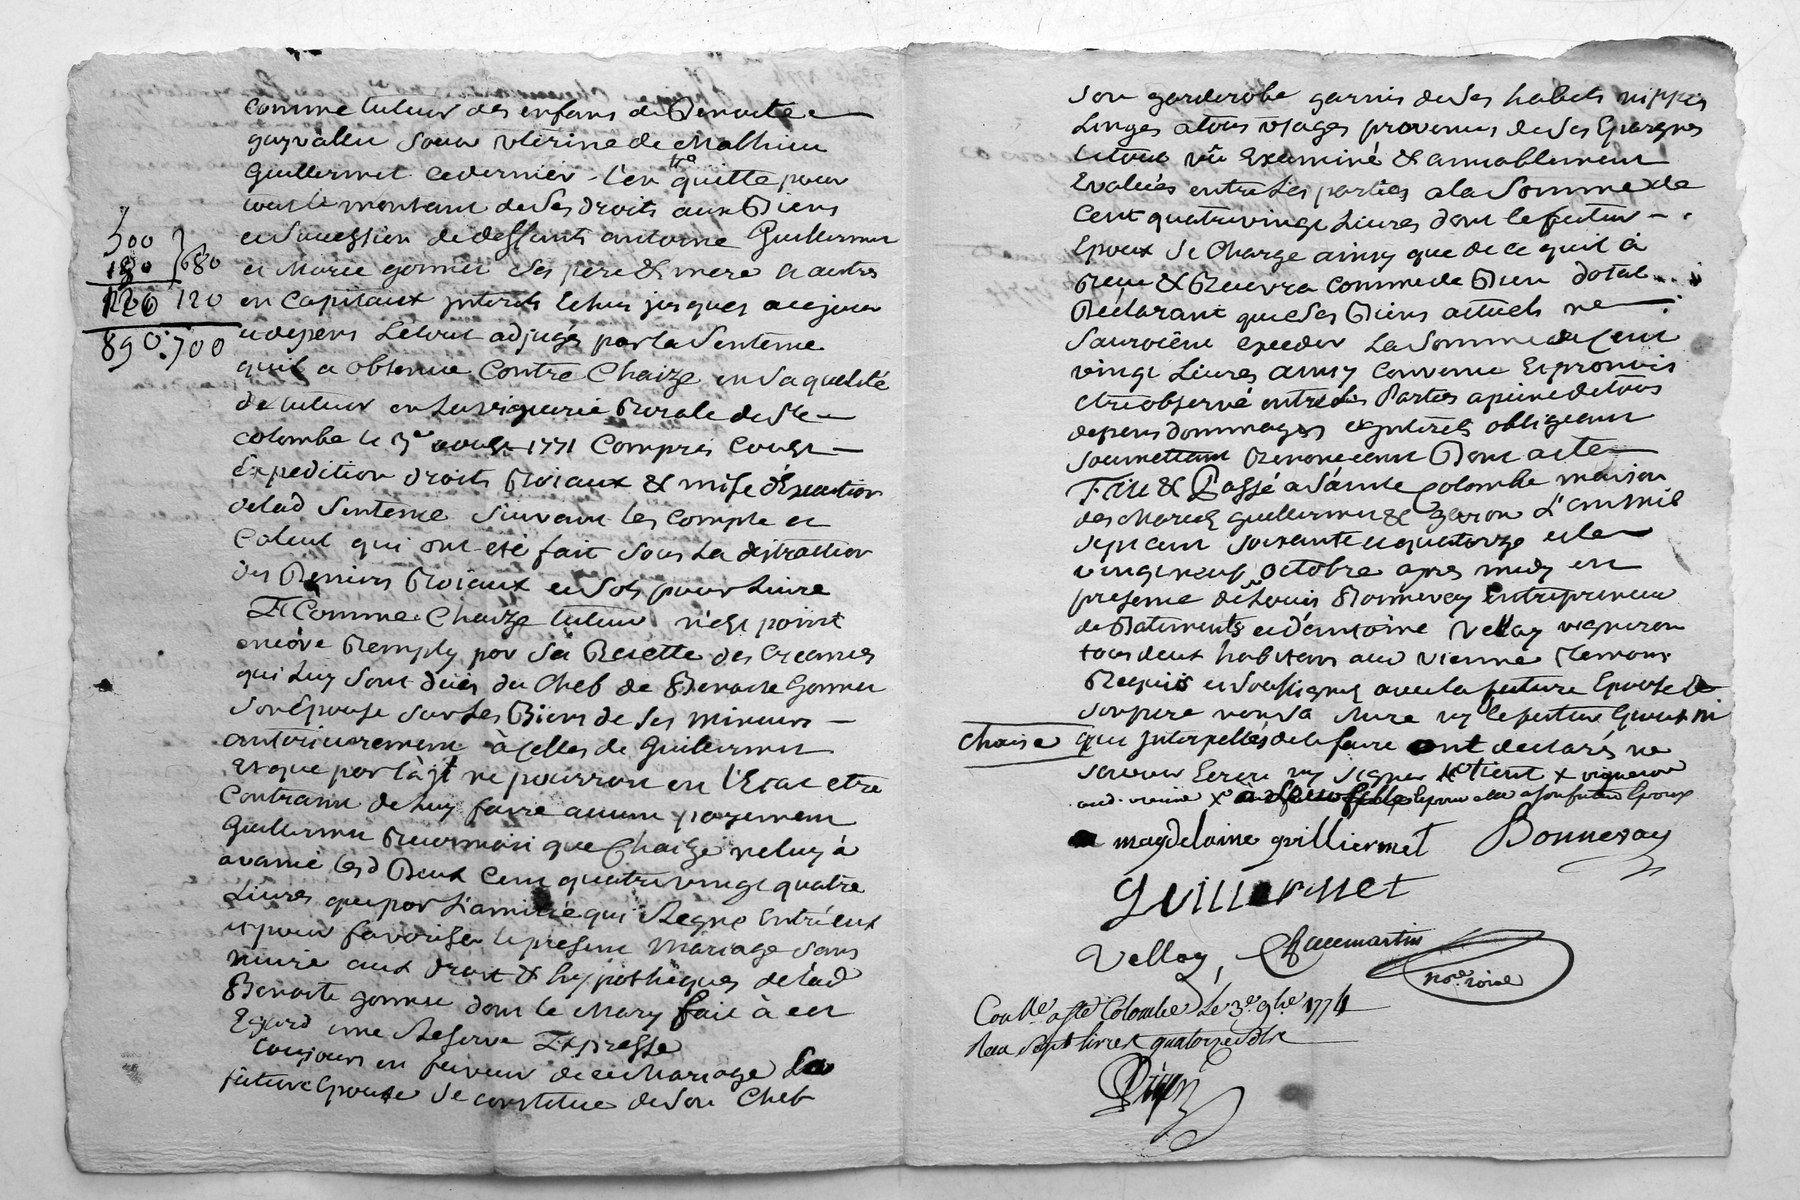 comme tuteur des enfans de Benoite
soeur uterine de Mathieu
Guillermet ce dernier l'en quitte pour
tout le montant de ses droits aux Biens
et Succession de deffunts antoine Guillermet
et Marie gonnet ses pere & mere et autres
en Capitaux jnterets Echus jusques a ce jour
et depens Letout adjugés par la Sentence
quil a obtenue Contre Chaize en Saqualité
de tuteur en La viguerie Royale de Ste
colombe le 3e aoust 1771 Compris Coust
Expedition droits Roiaux & mise d'Execution
delad Sentence Suivant les Compte et
Calcul qui ont été fait Sous La distraction
des Deniers Roiaux et Sols pour Livre
Et Comme Chaize tuteur n'est point
encore Remply par Sa Recette des Creances
qui Luy Sont dues du Chef de Benoite Gonnet
Son Epouse sur Les Biens de ses mineurs
anterieurement à Celles de Guillermet
Et que par là jl ne pourroit en l'Etat etre
Contraint de Luy faire aucun payement
Guillermet Reconnoit que Chaize ne luy à
avancé lesd Deux Cent quatre vingt quatre
Livres que par L'amitié qui Regne Entr'eux
et pour favoriser le present Mariage Sans
nuire aux droit & hypotheques de lad
Benoite gonnet dont le Mary fait à cet
Egard une Reserve Expresse
toujours en faveur de ce Mariage La
future Epouse Se constitue de Son Chef
500
180 680
120 120
890: 700
Son garderobe garnis de Ses habits nippes
Linges a tous Usages provenus de Ses Epargnes
Le tout vû Examiné & amiablement
Evalués entre Les parties a la Somme de
Cent quatre vingt Livres dont le futur
Epoux Se Charge ainsy que de ce quil à
Reçu & Recevra comme de Bien dotal
Déclarant que Ses Biens actuels ne
Sauroient exceder La Somme de Cent
vingt Livres ainsy Convenu Et promis
Etre observé entre les Parties a peine de tous
depens dommages & jnterets obligeant
Soumettant Renonceant Dont acte
Fait & Passé a Sainte Colombe maison
des Mariés guillermet & L'an mil
Sept cent Soixante et quatorze et le
vingt neuf octobre apres midy en
presence de Sr Louis Bonnevay Entrepreneur
de Batiments et d'antoine Vellay vigneron
tous deux habitans aud Vienne temoins
Requis et Soussignés avec la future Epouse &
Son pere non Sa Mere ny le futur Epoux ni
Chaise que jnterpellés de le faire ont declarés ne
Scavoir Ecrire ny Signer x vigneron
aud. vienne x a son futur Epoux
magdelaine guilliermet Bonnevay
Guillermet
Vellay,
nore. roial
Conlle a Ste Colombe Le 3e 9bre 1774
Reçu Sept livres quatorze Sols